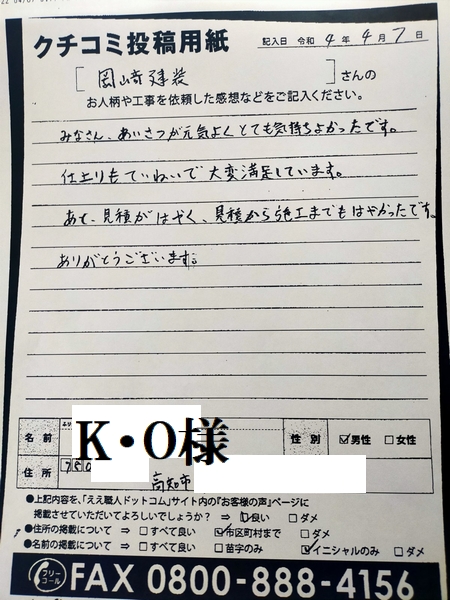 クチコミ投稿用紙
記入日 令和 4 年 4 月 7 日
[ 岡崎建装 ] さんの
お人柄や工事を依頼した感想などをご記入ください。
みなさん、あいさつが元気よくとても気持ちよかったです。
仕上りもていねいで大変満足しています。
あと、見積がはやく、見積から施工までもはやかったです。
ありがとうございます。
名前 K・O様 性別 ☑男性 □女性
住所 780
高知市
●上記内容を、「ええ職人ドットコム」サイト内の『お客様の声』ページに
掲載させていただいてよろしいでしょうか? ⇒ ☑良い □ダメ
●住所の掲載について ⇒ □すべて良い ☑市区町村まで □ダメ
●名前の掲載について ⇒ □すべて良い □苗字のみ ☑イニシャルのみ □ダメ
フリーコール FAX 0800-888-4156